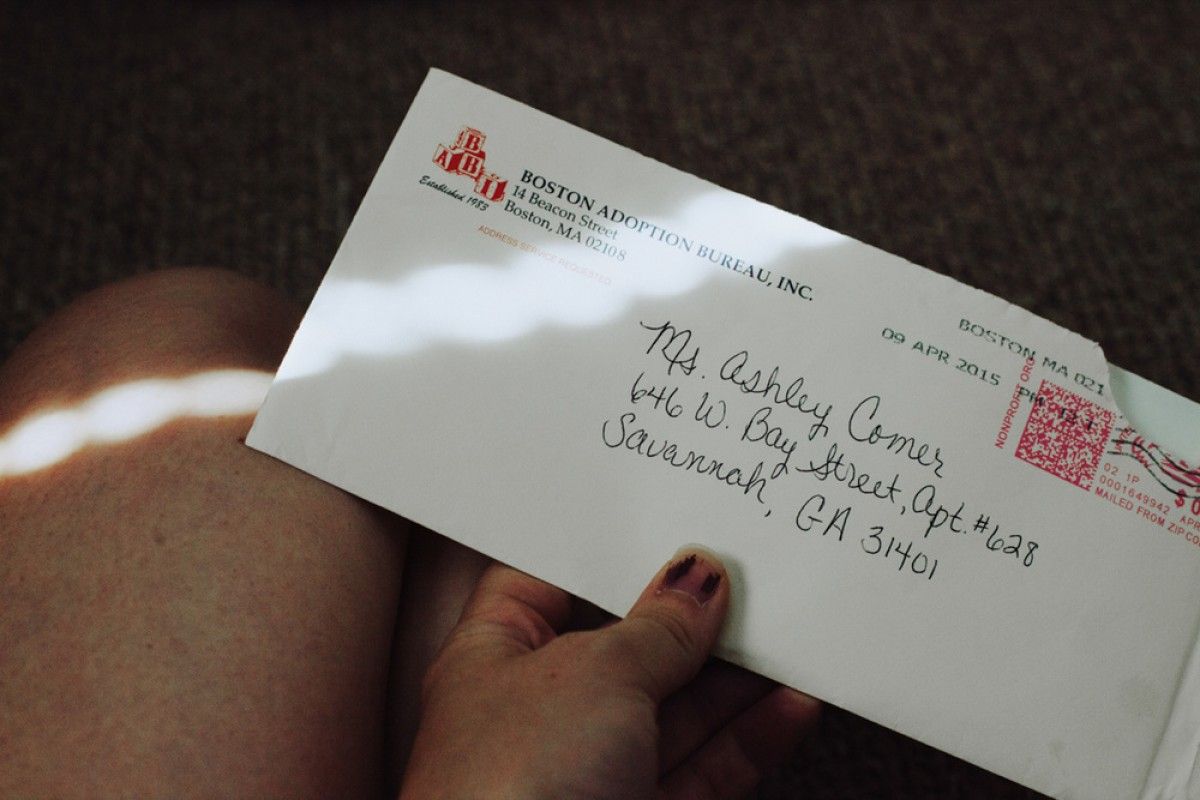 A B B I
Established 1983
BOSTON ADOPTION BUREAU, INC.
14 Beacon Street
Boston, MA 02108
ADDRESS SERVICE REQUESTED
BOSTON MA 021
09 APR 2015 PM 13 L
NONPROFIT ORG
02 1P
0001649942 APR
MAILED FROM ZIP CO
Ms. Ashley Comer
646 W. Bay Street, Apt. #628
Savannah, GA 31401